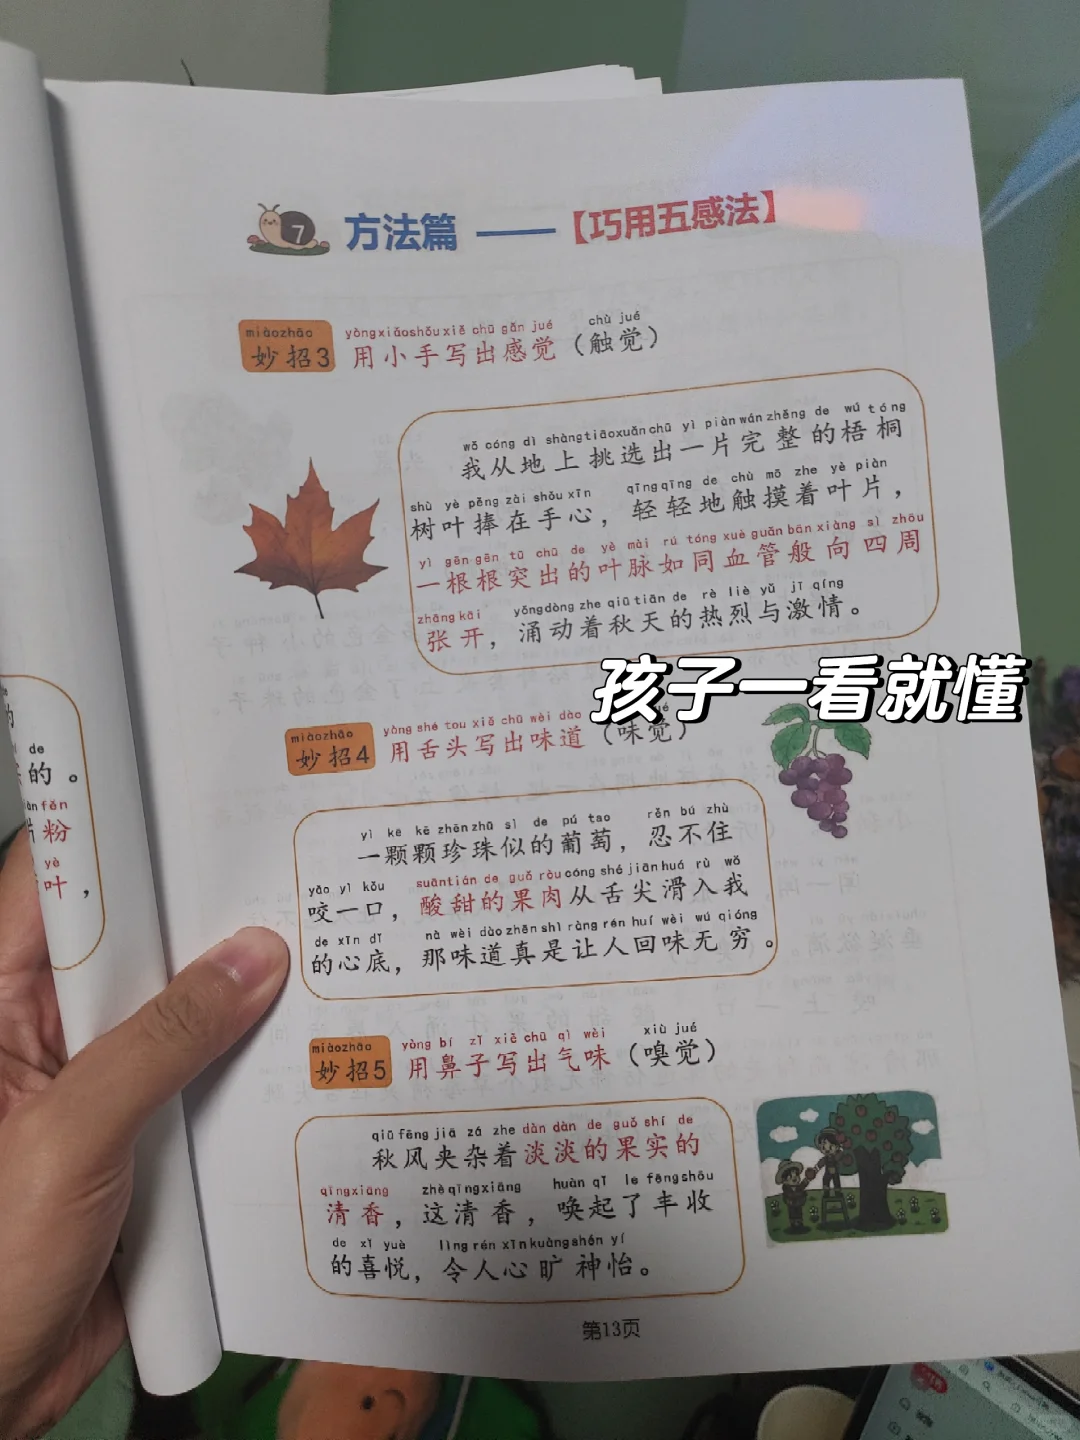 7 方法篇 ——【巧用五感法】
miàozhāo yòngxiǎoshǒuxiě chū gǎn jué chù jué
妙招3 用小手写出感觉（触觉）
wǒ cóng dì shàngtiāoxuǎnchū yì piànwánzhěng de wú tóng
我从地上挑选出一片完整的梧桐
shù yè pěng zài shǒu xīn qīngqīng de chù mō zhe yè piàn
树叶捧在手心，轻轻地触摸着叶片，
yì gēngēn tū chū de yè mài rú tóng xuè guǎn bān xiàng sì zhōu
一根根突出的叶脉如同血管般向四周
zhāngkāi yǒngdòng zhe qiūtiān de rè liè yǔ jī qíng
张开，涌动着秋天的热烈与激情。
孩子一看就懂
miàozhāo yòng shé tou xiě chū wèi dào
妙招4 用舌头写出味道（味觉）
yì kē kē zhēnzhū sì de pú tao rěn bú zhù
一颗颗珍珠似的葡萄，忍不住
yǎo yì kǒu suāntián de guǒ ròu cóng shé jiānhuá rù wǒ
咬一口，酸甜的果肉从舌尖滑入我
de xīn dǐ nà wèi dàozhēnshì ràng rén huí wèi wú qióng
的心底，那味道真是让人回味无穷。
miàozhāo yòng bí zǐ xiě chū qì wèi xiù jué
妙招5 用鼻子写出气味（嗅觉）
qiūfēng jiā zá zhe dàn dàn de guǒ shí de
秋风夹杂着淡淡的果实的
qīngxiāng zhèqīngxiāng huàn qǐ le fēngshōu
清香，这清香，唤起了丰收
de xǐ yuè lìng rén xīnkuàngshén yí
的喜悦，令人心旷神怡。
第13页
de
的。
fěn
粉
yè
叶，